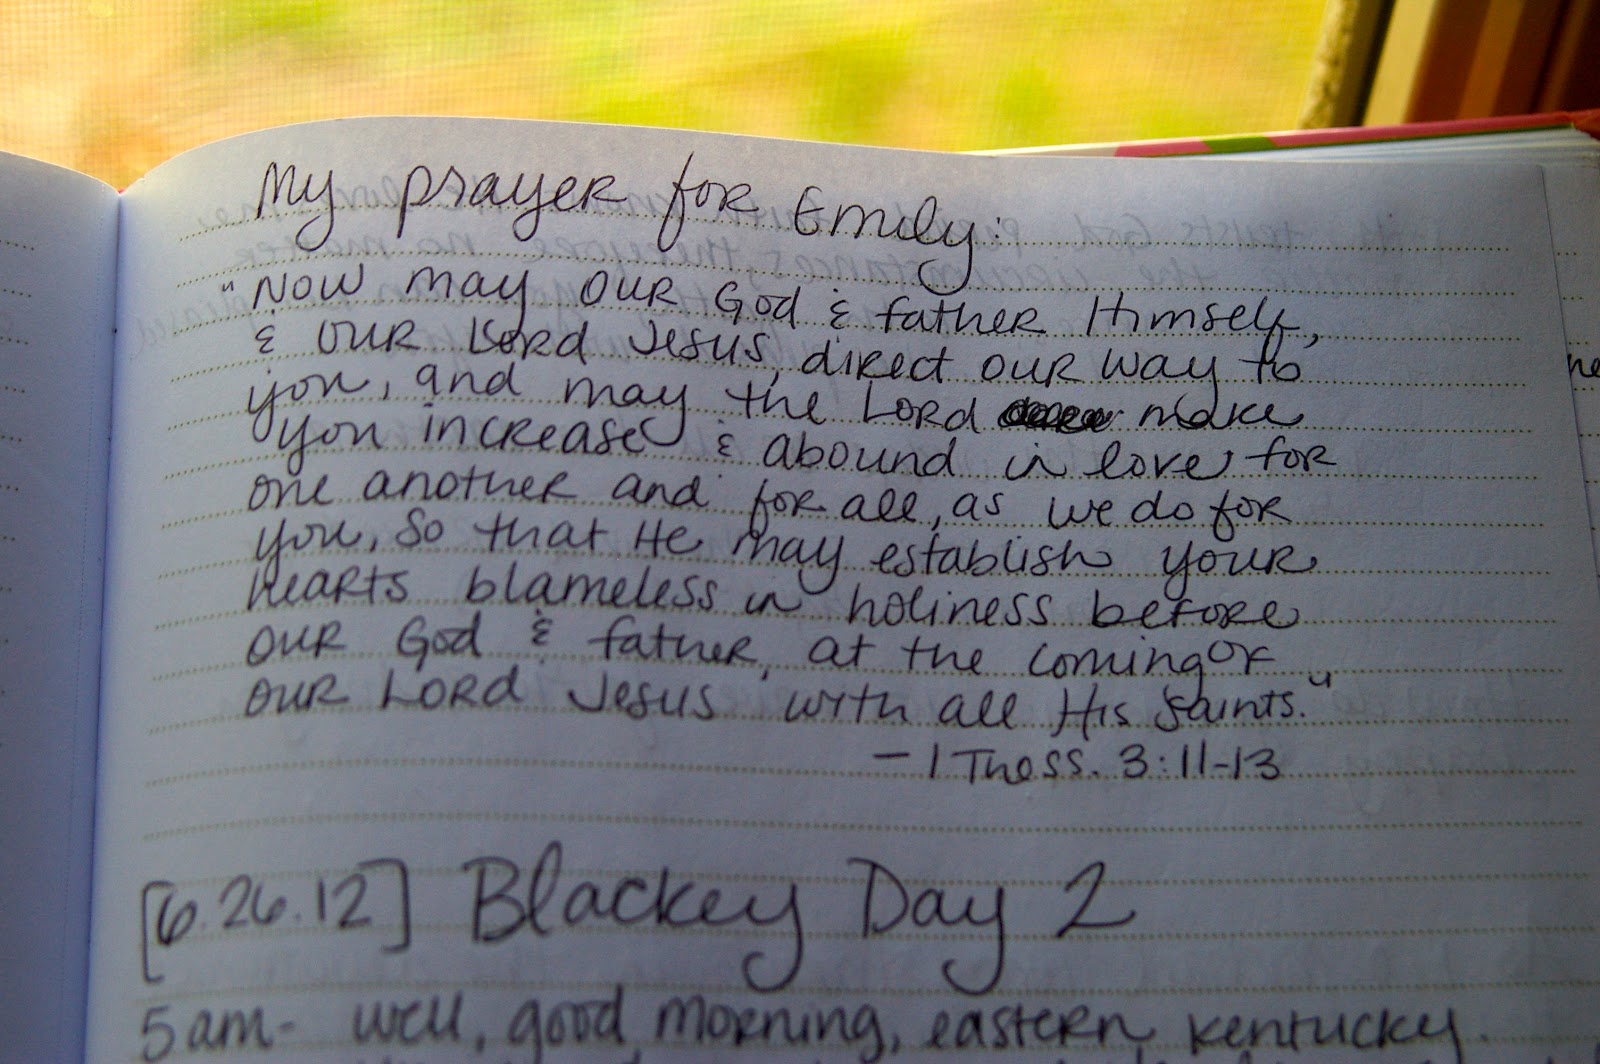 My prayer for Emily:
"Now may our God & Father Himself,
& our Lord Jesus, direct our way to
you, and may the Lord make
you increase & abound in love for
one another and for all, as we do for
you, so that He may establish your
hearts blameless in holiness before
our God & Father, at the coming of
our Lord Jesus with all His saints."
- 1 Thess. 3:11-13
[6.26.12] Blackey Day 2
5am- well, good morning, eastern kentucky.